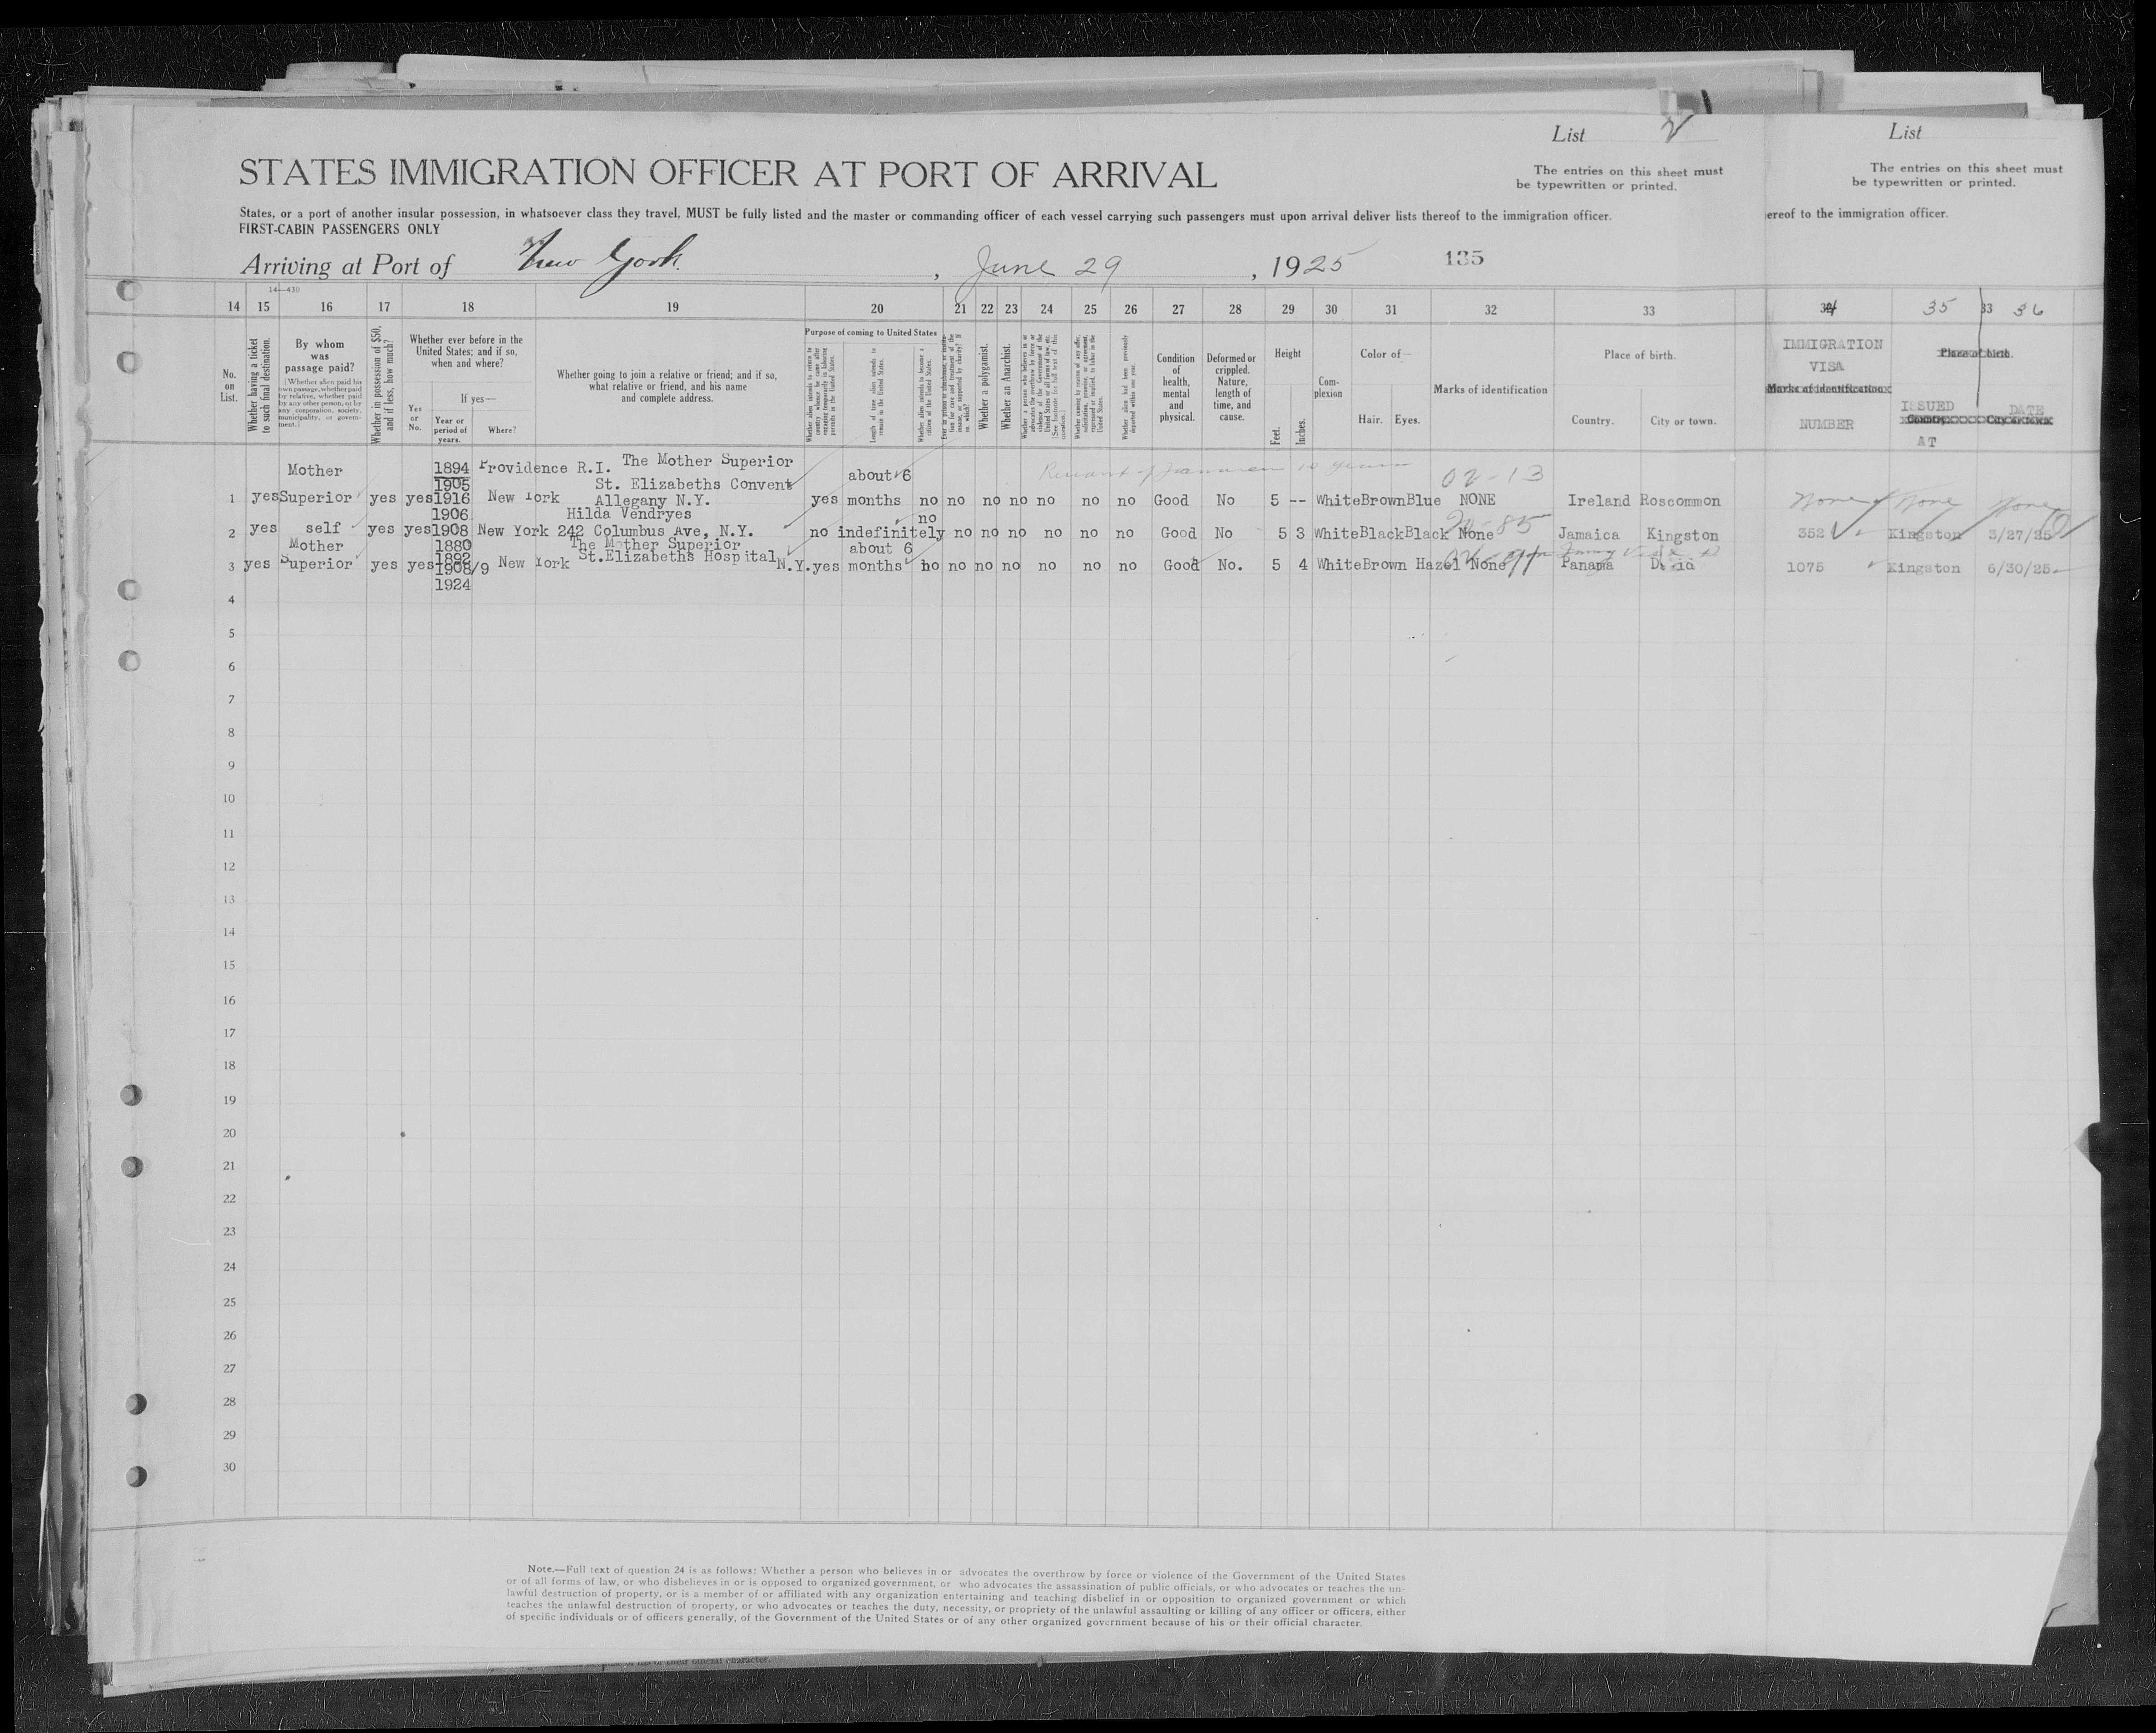 List 2
List
STATES IMMIGRATION OFFICER AT PORT OF ARRIVAL
The entries on this sheet must
be typewritten or printed.
The entries on this sheet must
be typewritten or printed.
States, or a port of another insular possession, in whatsoever class they travel, MUST be fully listed and the master or commanding officer of each vessel carrying such passengers must upon arrival deliver lists thereof to the immigration officer.
ereof to the immigration officer.
FIRST-CABIN PASSENGERS ONLY
Arriving at Port of New York, June 29, 1925
135
14—430
14 15 16 17 18 19 20 21 22 23 24 25 26 27 28 29 30 31 32 33 34 35 33 36
No. on List.
Whether having a ticket to such final destination.
By whom was passage paid?
(Whether alien paid his own passage, whether paid by relative, whether paid by any other person, or by any corporation, society, municipality, or government.)
Whether in possession of $50, and if less, how much?
Whether ever before in the United States; and if so, when and where?
If yes—
Yes or No.
Year or period of years.
Where?
Whether going to join a relative or friend; and if so, what relative or friend, and his name and complete address.
Purpose of coming to United States
Whether alien intends to return to country whence he came after engaging temporarily in laboring pursuits in the United States.
Length of time alien intends to remain in the United States.
Whether alien intends to become a citizen of the United States.
Whether a polygamist.
Whether an Anarchist.
Whether alien had been previously deported within one year.
Condition of health, mental and physical.
Deformed or crippled. Nature, length of time, and cause.
Height
Feet.
Inches.
Complexion
Color of—
Hair. Eyes.
Marks of identification
Place of birth.
Country. City or town.
IMMIGRATION VISA
Marks of identification
NUMBER
Place of birth.
ISSUED AT
Country.
DATE
City or town.
Mother 1894 Providence R.I. The Mother Superior about 6 02-13
1905 St. Elizabeths Convent
1 yes Superior yes yes 1916 New York Allegany N.Y. yes months no no no no no no no Good No 5 -- White Brown Blue NONE Ireland Roscommon None None None
1906 Hilda Vendryes no
2 yes self yes yes 1908 New York 242 Columbus Ave, N.Y. no indefinitely no no no no no no Good No 5 3 White Black Black None Jamaica Kingston 352 Kingston 3/27/25
Mother 1880 The Mother Superior about 6
1892 St.Elizabeths Hospital
3 yes Superior yes yes 1908/9 New York N.Y. yes months no no no no no no no Good No. 5 4 White Brown Hazel None Panama David 1075 Kingston 6/30/25
1924
4
5
6
7
8
9
10
11
12
13
14
15
16
17
18
19
20
21
22
23
24
25
26
27
28
29
30
Note.—Full text of question 24 is as follows: Whether a person who believes in or advocates the overthrow by force or violence of the Government of the United States
or of all forms of law, or who disbelieves in or is opposed to organized government, or who advocates the assassination of public officials, or who advocates or teaches the un-
lawful destruction of property, or is a member of or affiliated with any organization entertaining and teaching disbelief in or opposition to organized government or which
teaches the unlawful destruction of property, or who advocates or teaches the duty, necessity, or propriety of the unlawful assaulting or killing of any officer or officers, either
of specific individuals or of officers generally, of the Government of the United States or of any other organized government because of his or their official character.